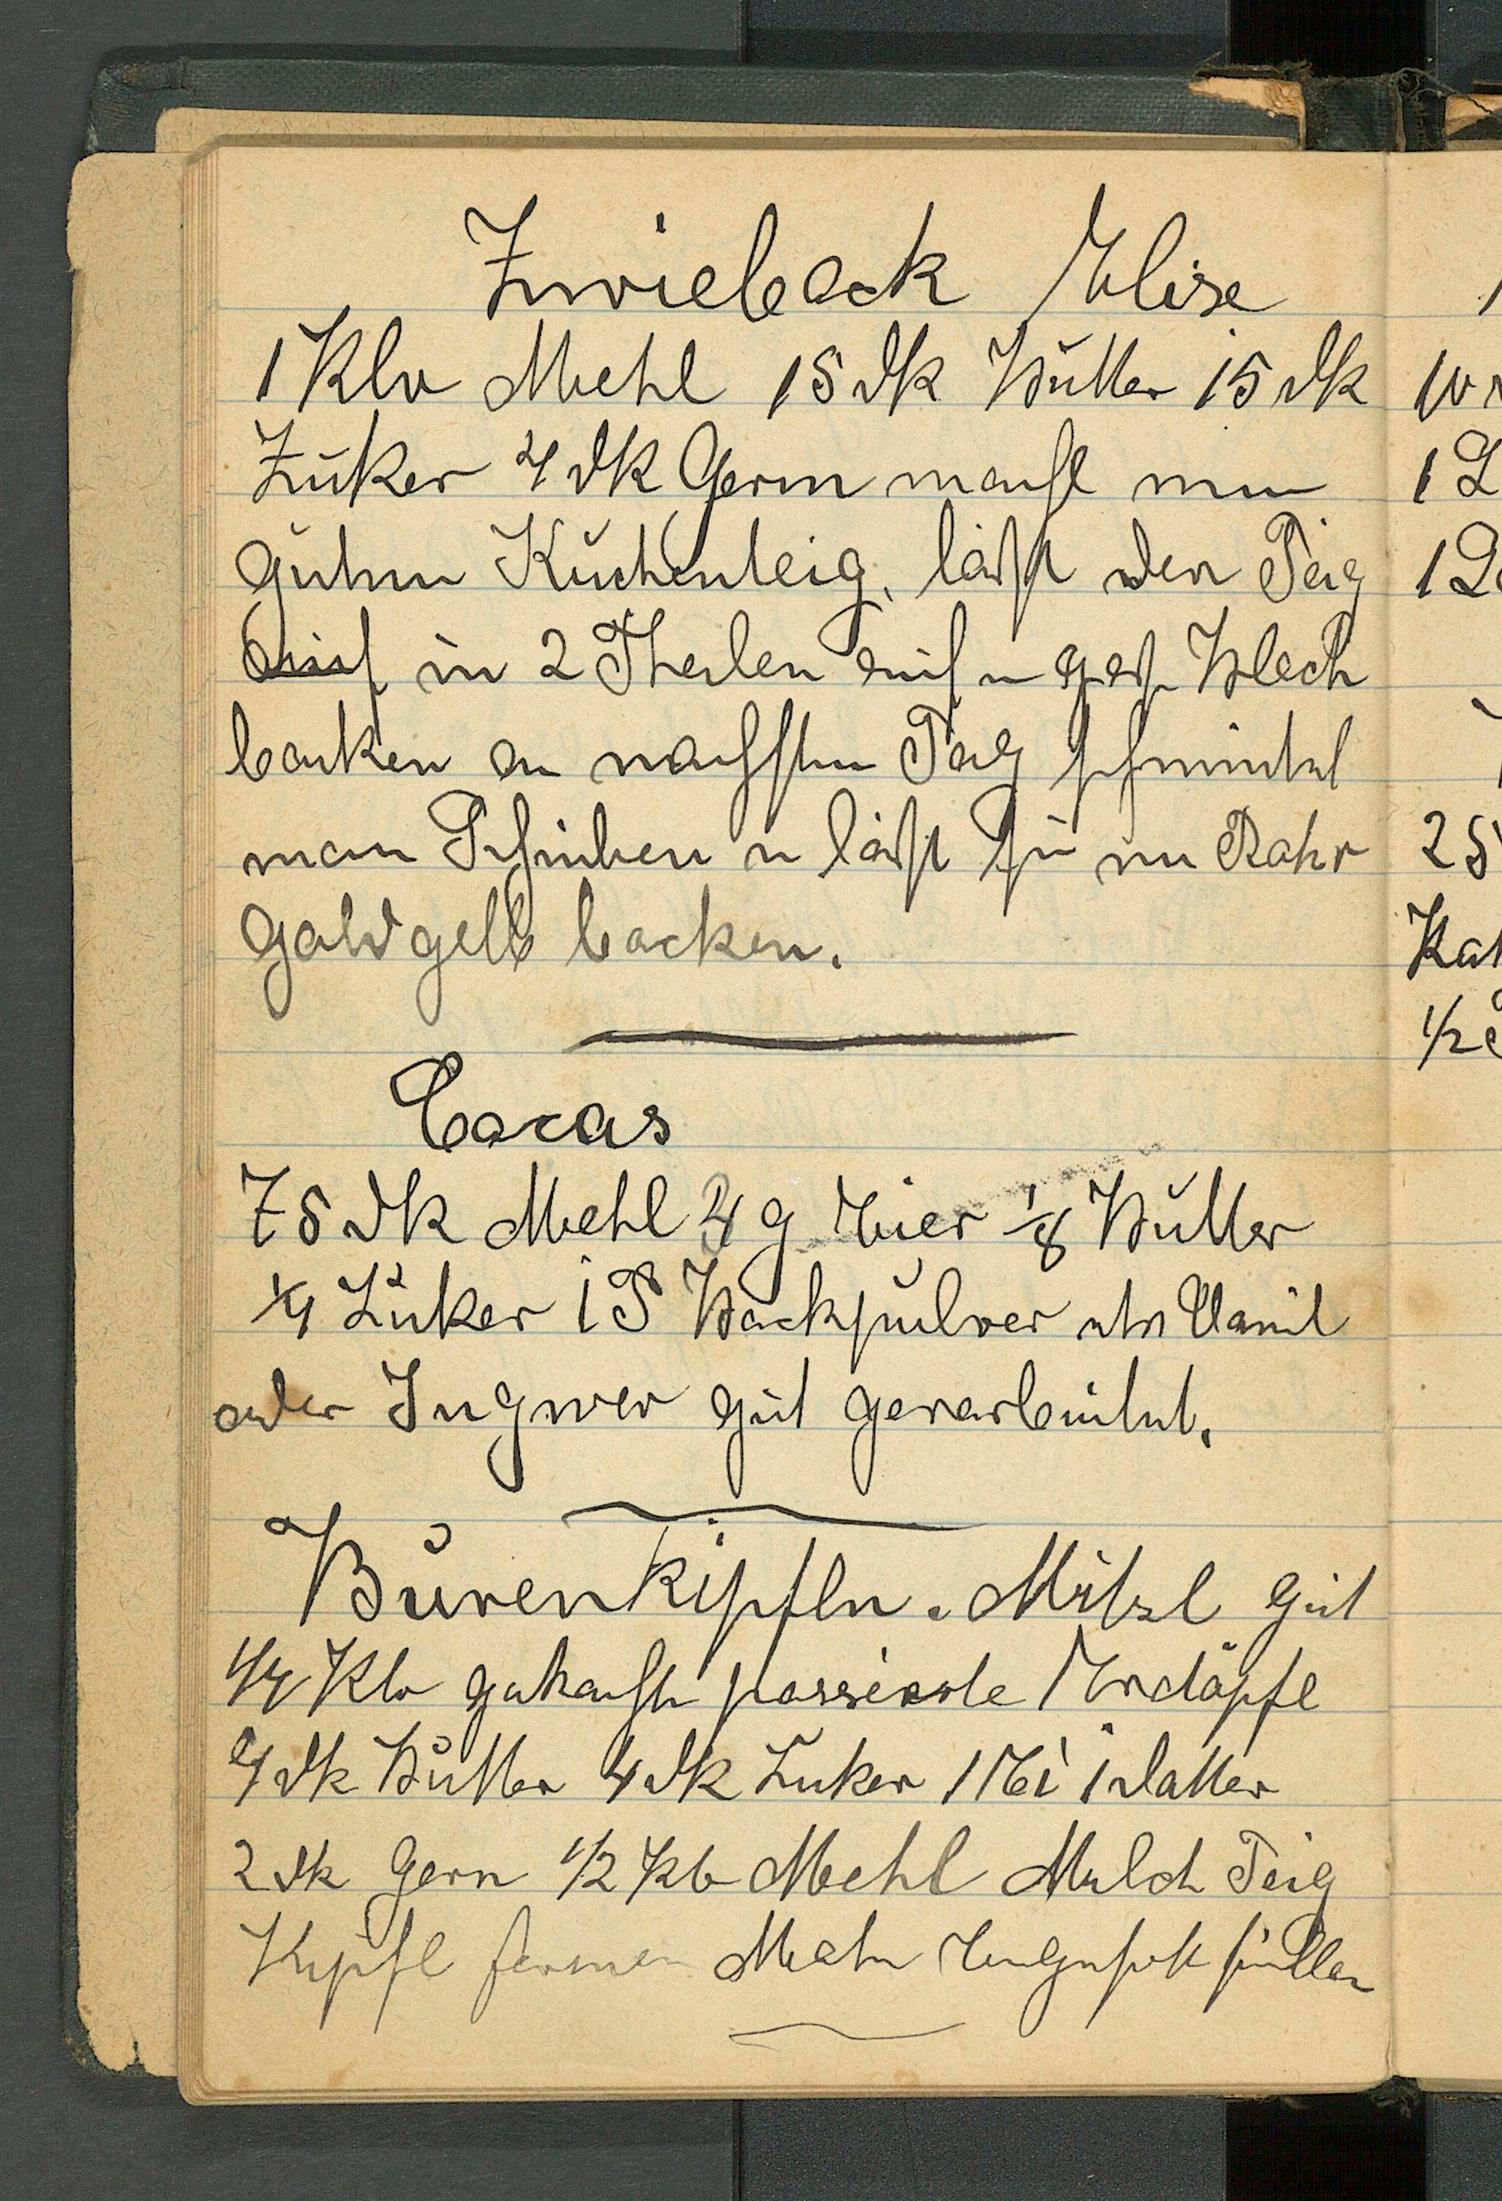 Zwieback Elise
1 Klo Mehl 15 dk Butter 15 dk
Zuker 4 dk Germ macht nen
guten Kuchenteig, läßt den Teig
in 2 Theilen auf n Blech
backen an nächsten Tag schneidet
man Scheiben u läßt sie im Rohr
Goldgelb backen.
Cacas
75 dk Mehl 4 g Eier 1/8 Butter
1/4 Zuker 1 P Backpulver etw Vanil
oder Ingwer gut gerarbeitet.
Burenkipfln. Mitzl gut
1/4 Klo gekochte passierte Erdäpfl
4 dk Butter 4 dk Zuker 1 Ei 1 Dotter
2 dk Germ 1/2 Klo Mehl Milch Teig
Kipfl formen Mohn füllen
10
1 Z
1
25
1/2